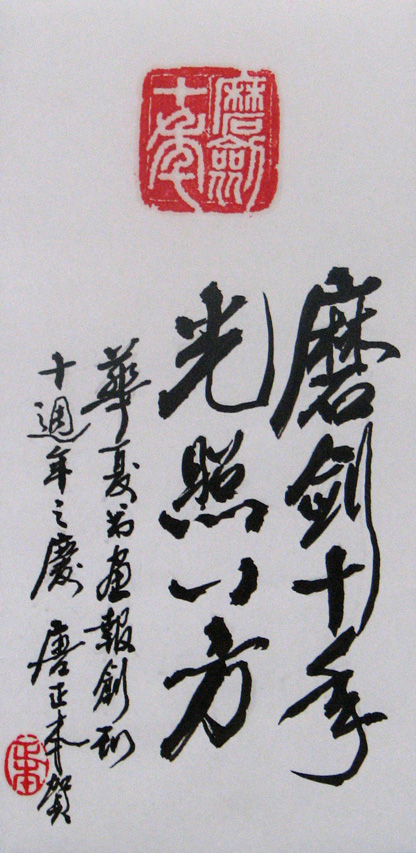 磨劍
十年
磨劍十年
光照八方
華夏书畫報創刊
十週年之慶 唐正本賀